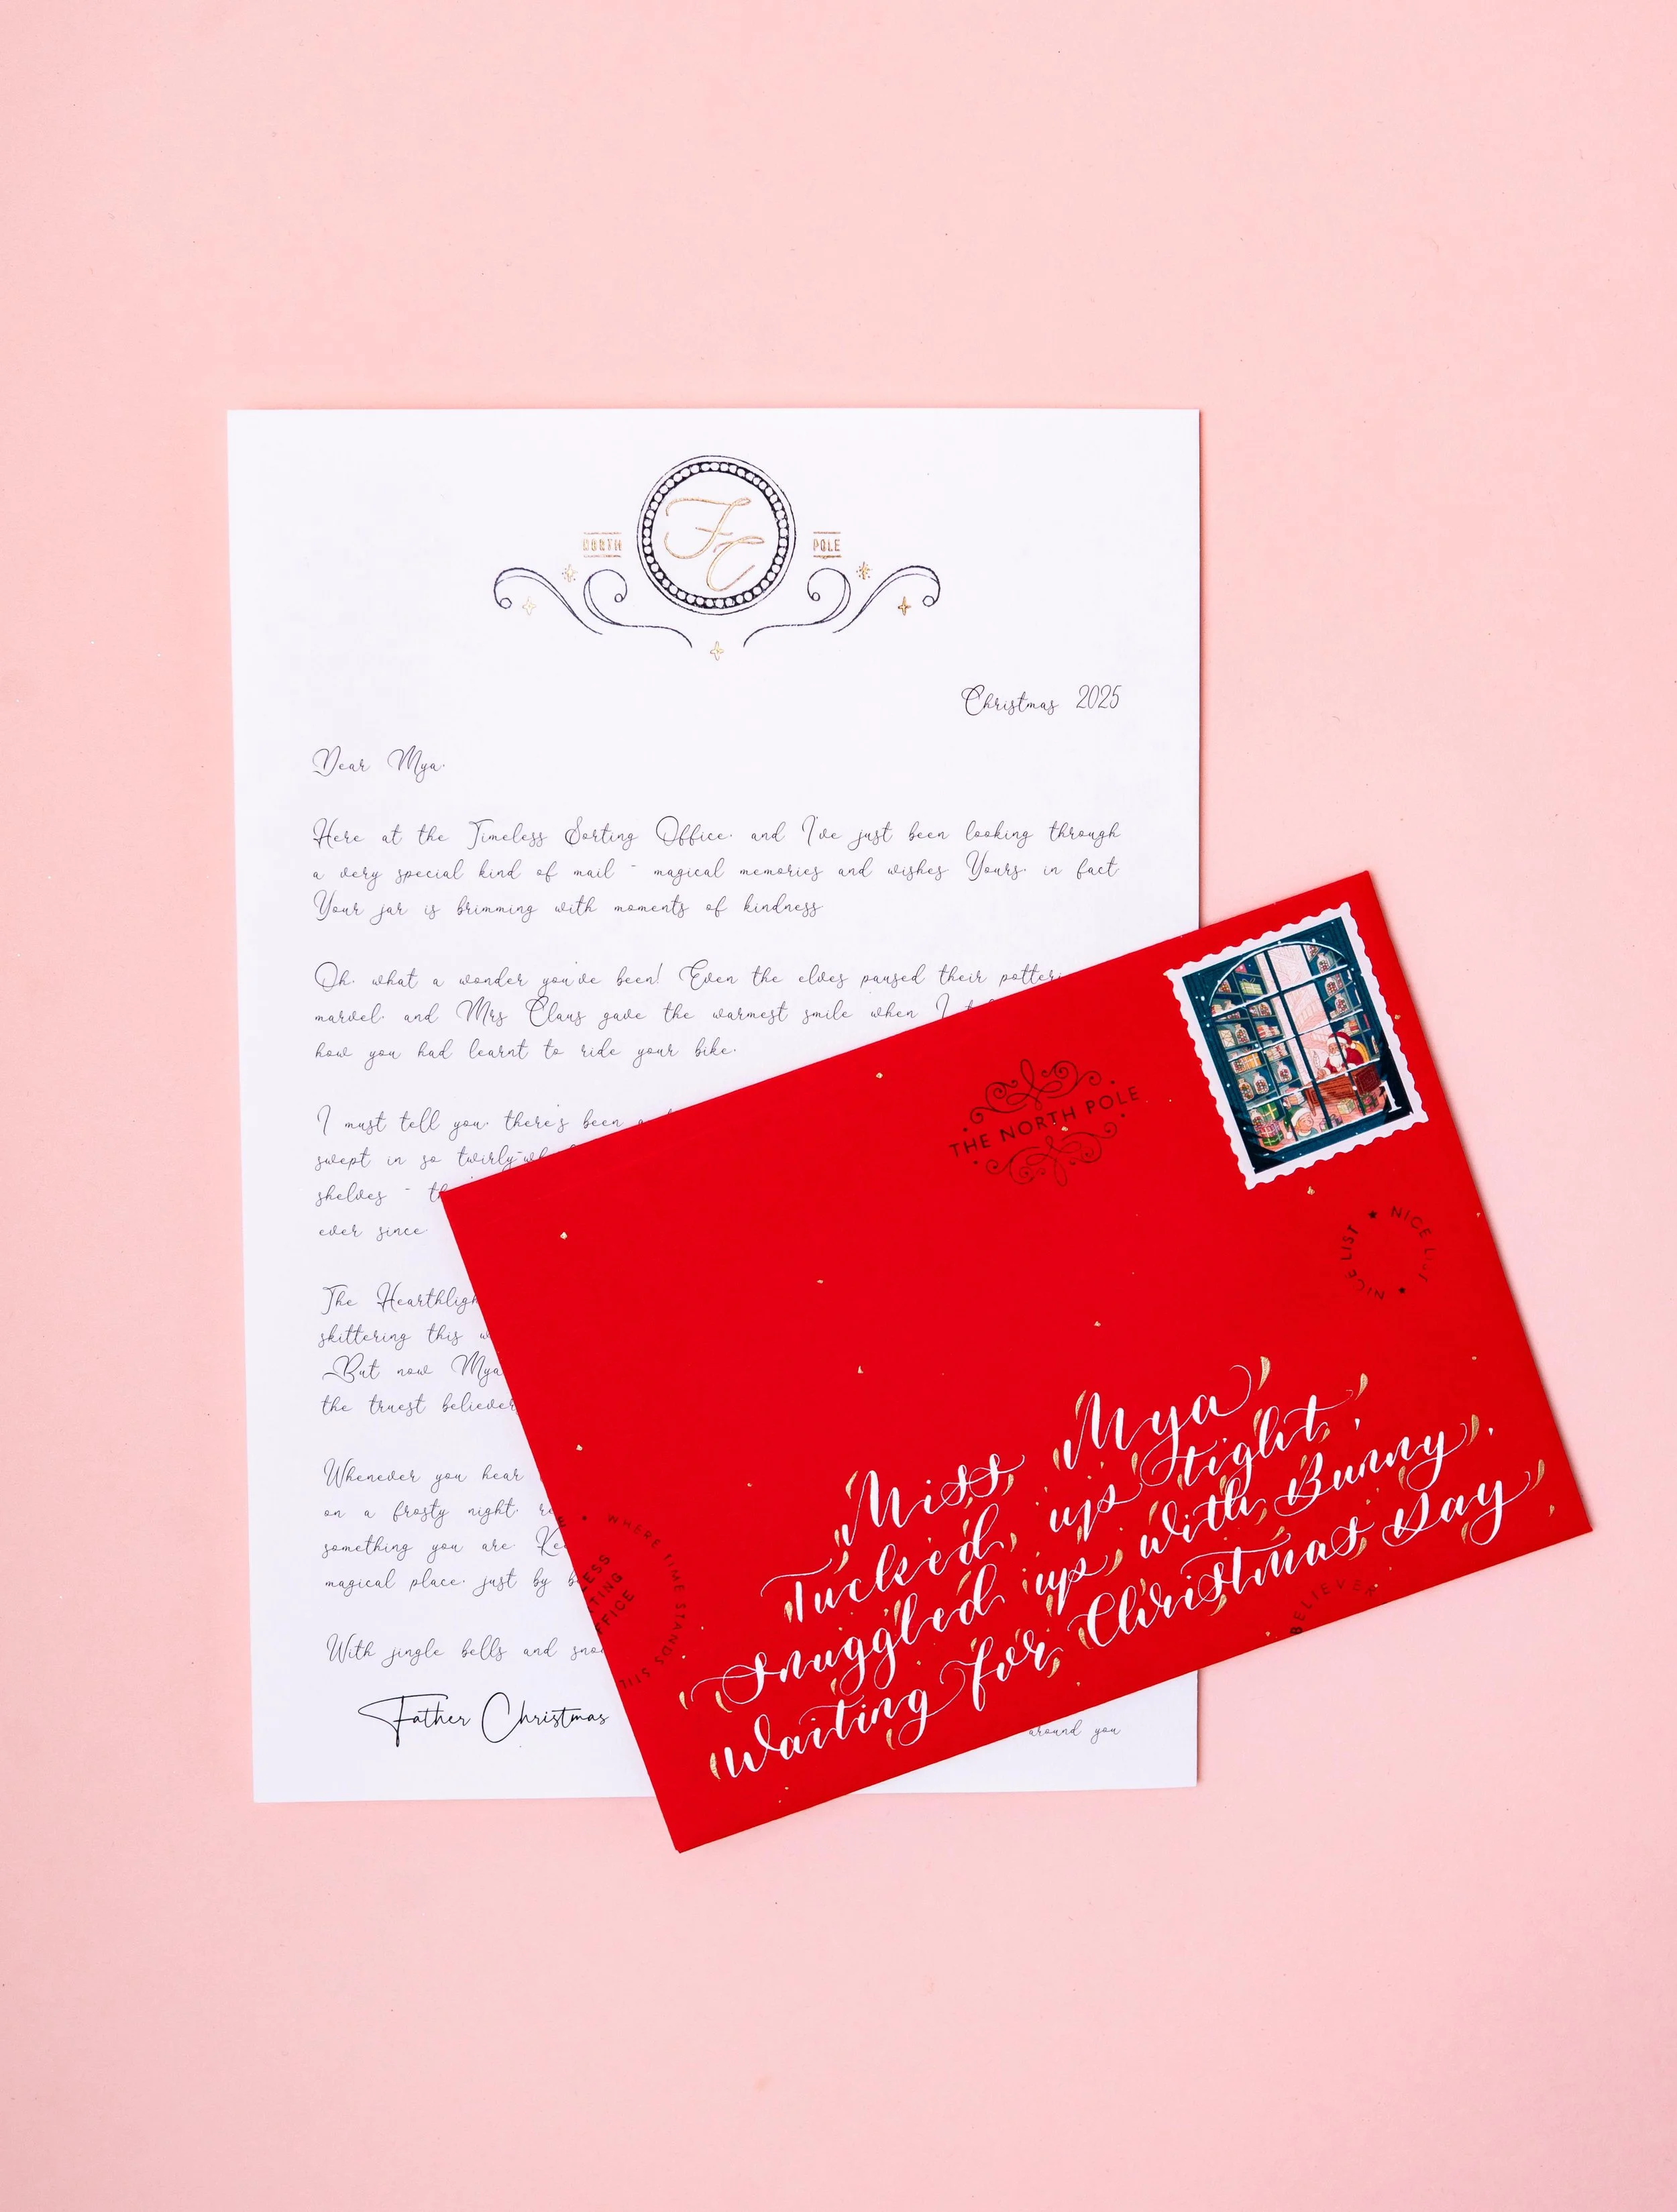 NORTH POLE
FC
Christmas 2025
Dear Mya,
Here at the Timeless Sorting Office, and I've just been looking through
a very special kind of mail - magical memories and wishes. Yours, in fact.
Your jar is brimming with moments of kindness
Oh, what a wonder you've been! Even the elves paused their
marvel, and Mrs Claus gave the warmest smile when I
how you had learnt to ride your bike.
I must tell you, there's been a
swept in so
shelves -
ever since
The
skittering this
But now Mya
the truest believer
Whenever you hear
on a frosty night,
something you are.
magical place, just by
With jingle bells and
Father Christmas
around you
THE NORTH POLE
NICE LIST ★ NICE LIST ★
Miss Mya
Tucked up tight,
Snuggled up with Bunny,
Waiting for Christmas Day
WHERE TIME STANDS STILL
BELIEVER